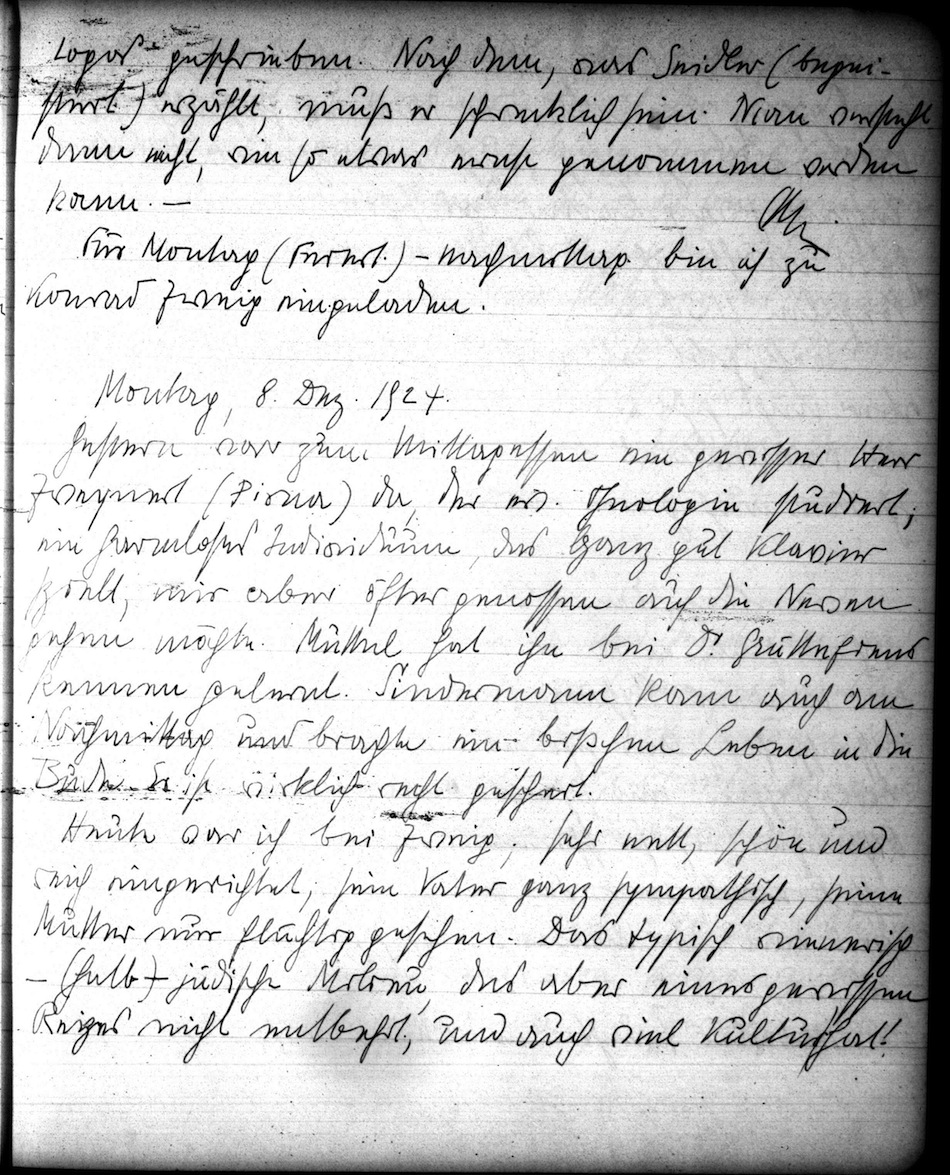 Logos geschrieben. Nach dem, was Seidler (begei-
stert) erzählt, muß er schrecklich sein. Man versteht
dann nicht, wie so etwas ernst genommen werden
kann. —
Für Montag (Feiert.) – nachmittag bin ich zu
Konrad Zweig eingeladen.
Montag, 8. Dez. 1924.
Gestern war zum Mittagessen ein gewisser Herr
(Pirna) da, der ev. Theologie studiert;
ein harmloses Individuum, das ganz gut Klavier
spielt, mir aber öfter genossen auf die Nerven
gehen möchte. Muttel hat ihn bei Dr.
kennen gelernt. Sindermann kam auch am
Nachmittag und brachte ein bißchen Leben in die
Bude. Er ist wirklich recht gescheit.
Heute war ich bei Zweig; sehr nett, schön und
reich eingerichtet; sein Vater ganz sympathisch, seine
Mutter nur flüchtig gesehen. Das typisch wienerisch
– (halb-) jüdische Milieu, das aber eines gewissen
Reizes nicht entbehrt, und auch viel Kultur hat!